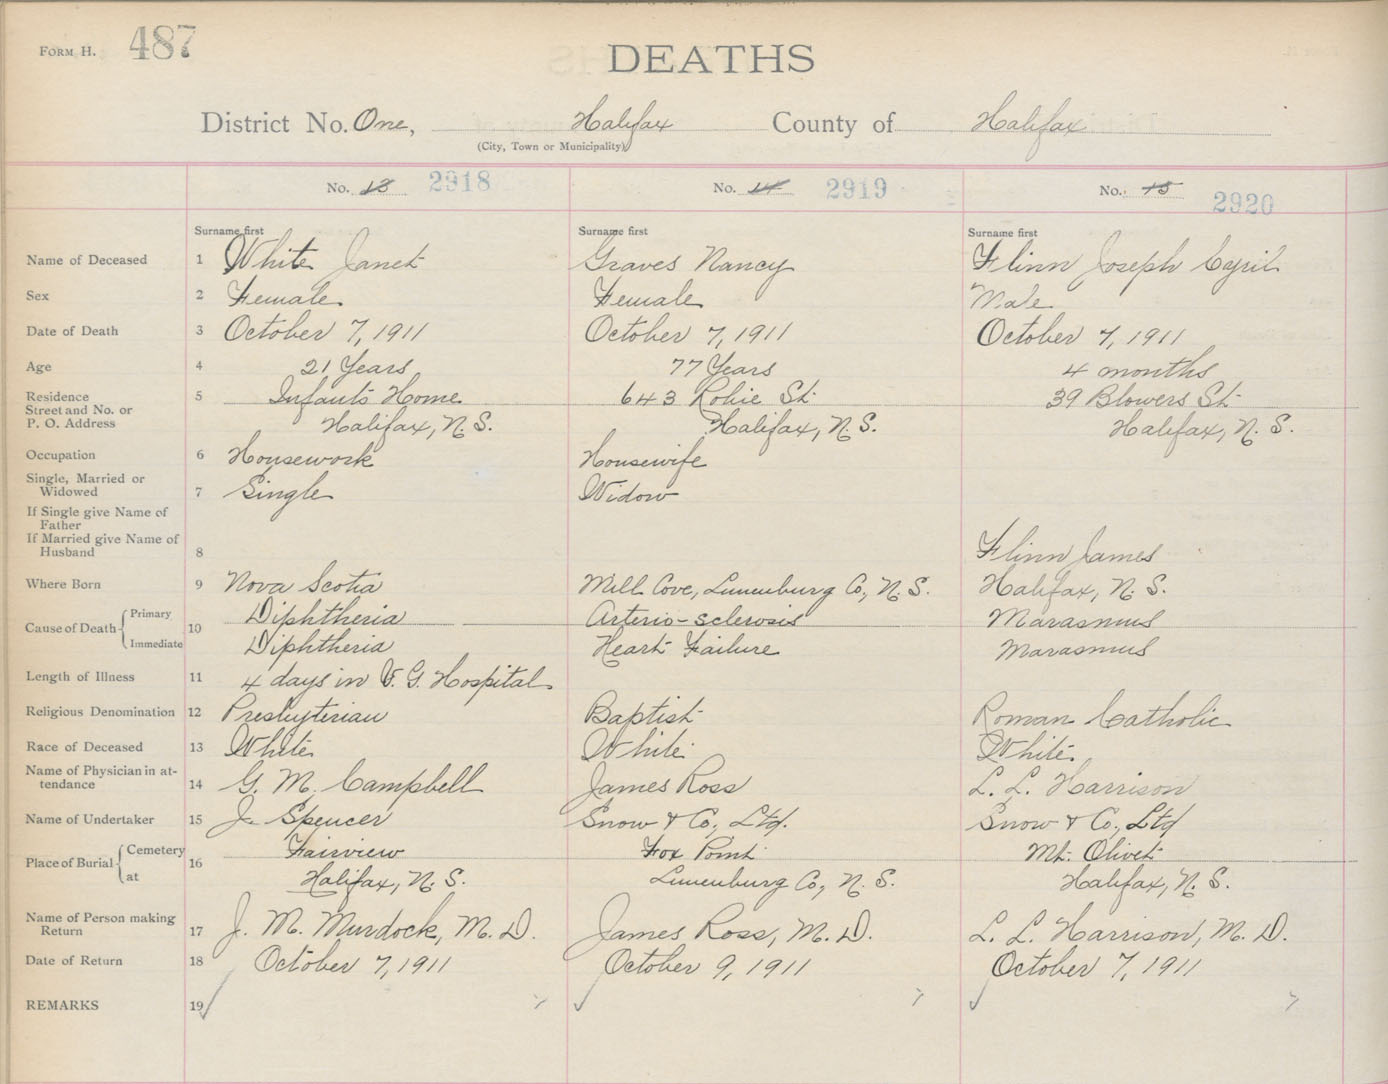 FORM H. 487
DEATHS
District No. One, Halifax County of Halifax
(City, Town or Municipality)
No. 13 2918 No. 14 2919 No. 15 2920
Surname first Surname first Surname first
Name of Deceased 1 White Janet Graves Nancy Flinn Joseph Cyril
Sex 2 Female Female Male
Date of Death 3 October 7, 1911 October 7, 1911 October 7, 1911
Age 4 21 Years 77 Years 4 months
Residence 5 Infants Home 643 Robie St. 39 Blowers St.
Street and No. or
P. O. Address Halifax, N. S. Halifax, N. S. Halifax, N. S.
Occupation 6 Housework Housewife
Single, Married or
Widowed 7 Single Widow
If Single give Name of
Father
If Married give Name of
Husband 8 Flinn James
Where Born 9 Nova Scotia Mill Cove, Lunenburg Co, N. S. Halifax, N. S.
Cause of Death Primary 10 Diphtheria Arterio-sclerosis Marasmus
Immediate Diphtheria Heart Failure Marasmus
Length of Illness 11 4 days in V. G. Hospital
Religious Denomination 12 Presbyterian Baptist Roman Catholic
Race of Deceased 13 White White White
Name of Physician in at-
tendance 14 G. M. Campbell James Ross L. L. Harrison
Name of Undertaker 15 J. Spencer Snow & Co., Ltd. Snow & Co., Ltd
Place of Burial Cemetery 16 Fairview Fox Point Mt. Olivet
at Halifax, N. S. Lunenburg Co, N. S. Halifax, N. S.
Name of Person making
Return 17 J. M. Murdock, M. D. James Ross, M. D. L. L. Harrison, M. D.
Date of Return 18 October 7, 1911 October 9, 1911 October 7, 1911
REMARKS 19